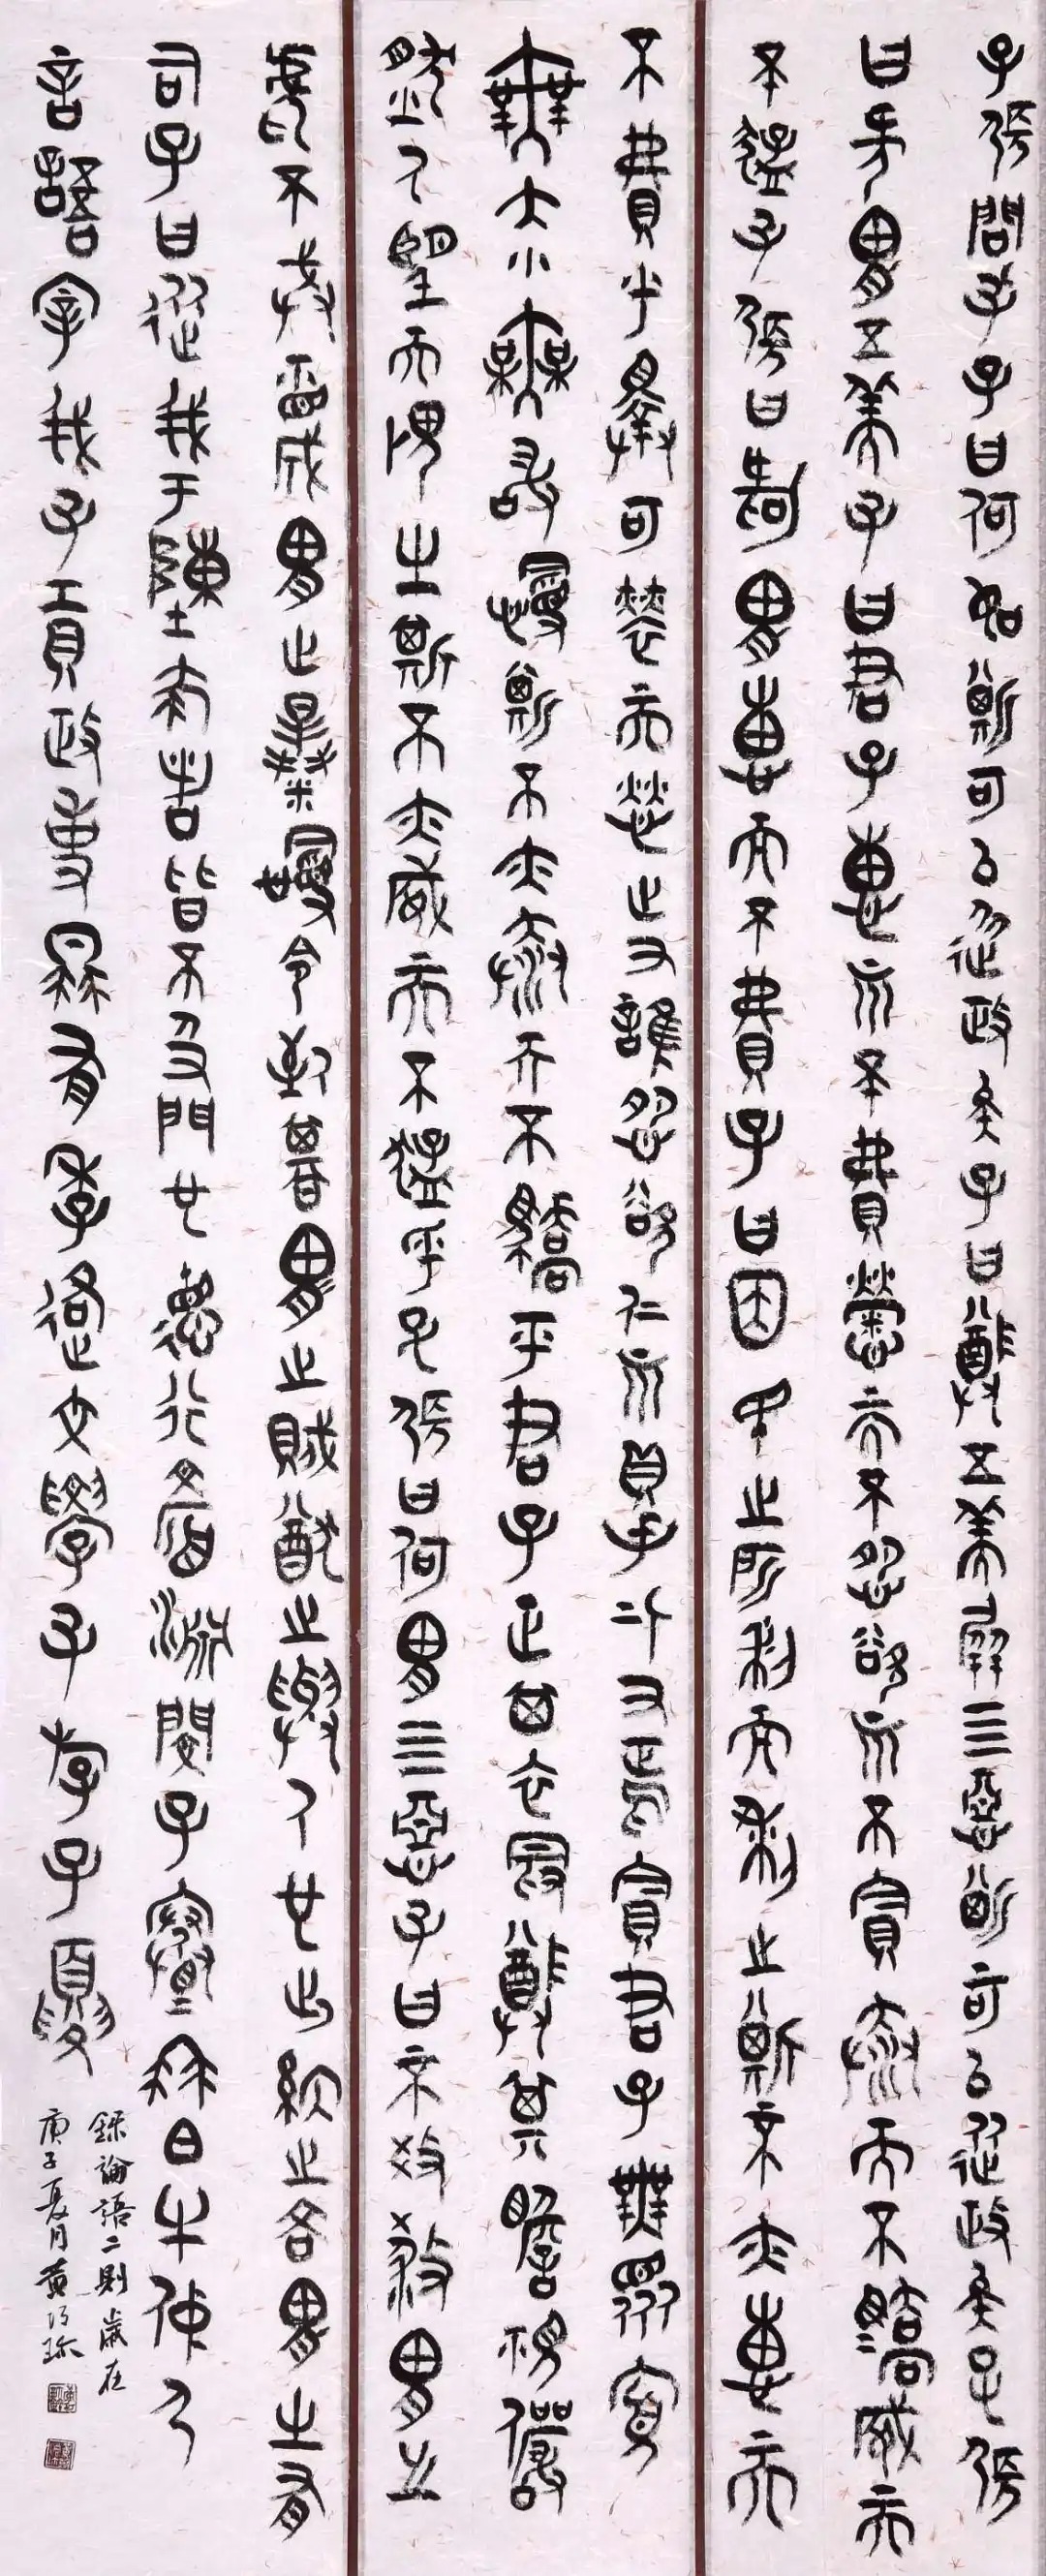 子張問孔子曰何如斯可以從政矣子曰尊五美屏四惡斯可以從政矣子張
曰何謂五美子曰君子惠而不費勞而不怨欲而不貪泰而不驕威而
不猛子張曰何謂惠而不費子曰因民之所利而利之斯不亦惠而
不費乎擇可勞而勞之又誰怨欲仁而得仁又焉貪君子無眾寡
無大小無敢慢斯不亦泰而不驕乎君子正其衣冠尊其瞻視儼
然人望而畏之斯不亦威而不猛乎子張曰何謂四惡子曰不教殺謂之
虐不戒視成謂之暴慢令致期謂之賊猶之與人也出納之吝謂之有
司子曰從我于陳蔡者皆不及門也德行顏淵閔子騫冉白牛仲弓
言語宰我子貢政事冉有季路文學子游子夏
錄論語二則歲在
庚子夏月黃